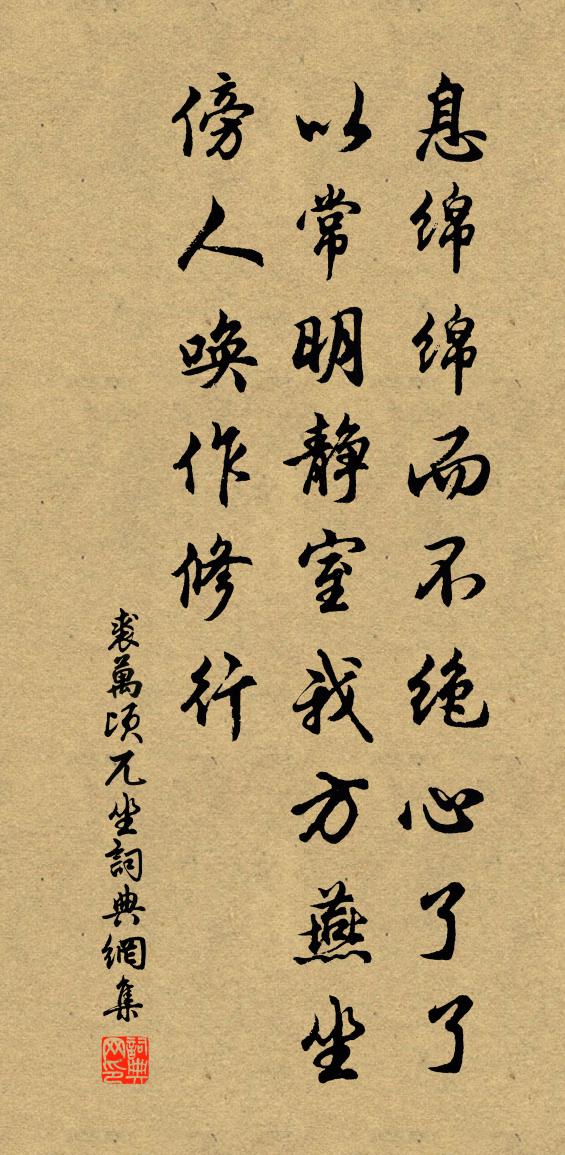 息绵绵而不绝心了了
以常明静室我方燕坐
傍人唤作修行
裘萬頃兀坐詞典網集
詞典网印